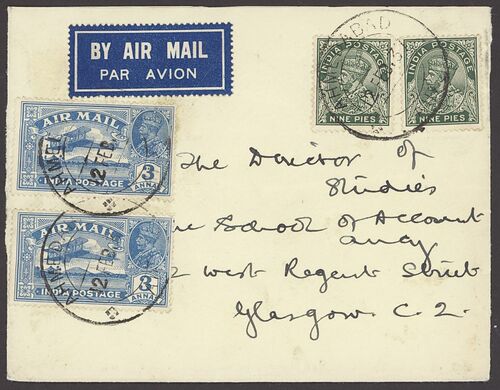 BY AIR MAIL
PAR AVION
INDIA POSTAGE
NINE PIES
INDIA POSTAGE
NINE PIES
AIR MAIL
3
ANNAS
12 FEB
AIR MAIL
3
ANNAS
INDIA POSTAGE
12 FEB
The Director of
Studies
The School of Account
ancy
2 West Regent Street
Glasgow C.2.